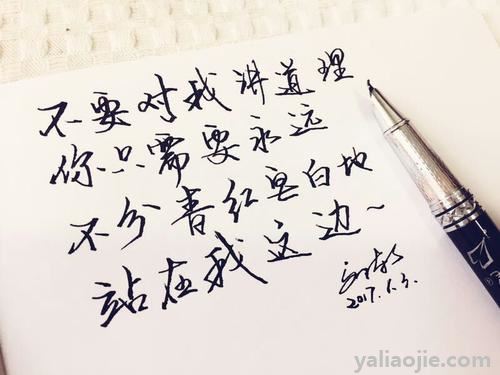 不要对我讲道理
你只需要永远
不分青红皂白地
站在我这边~
2017.6.3.
yaliaojie.com